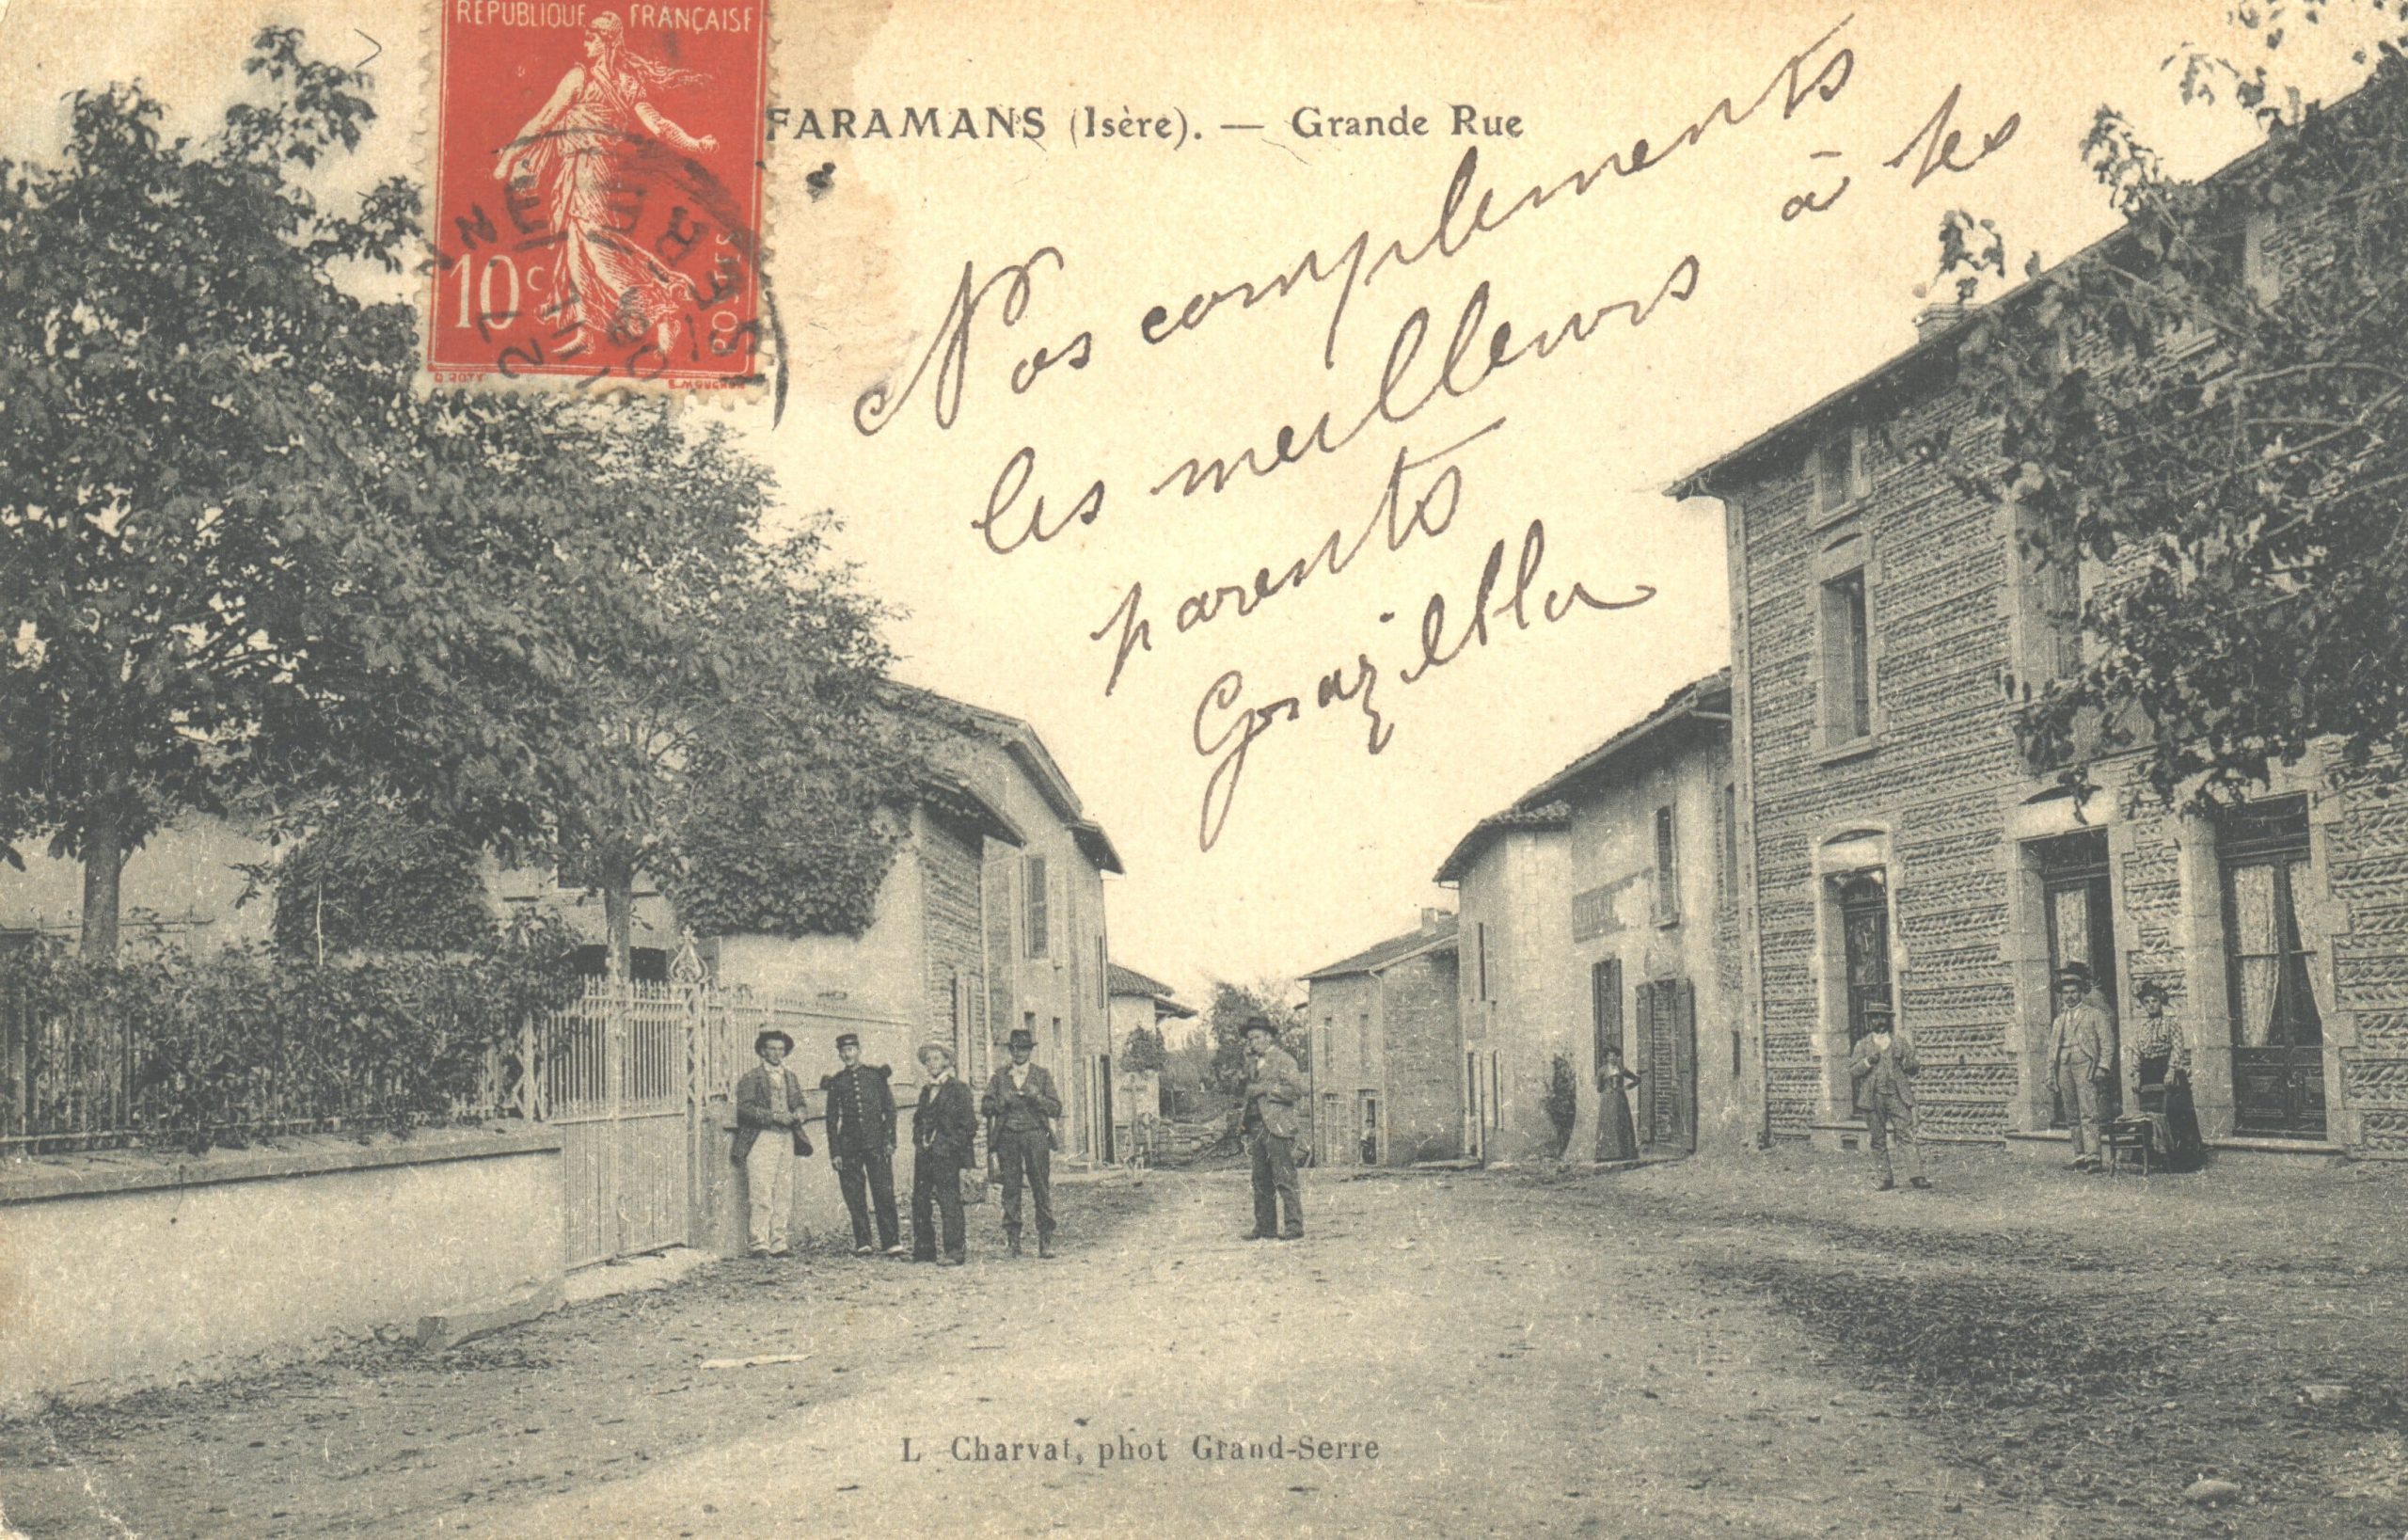 REPUBLIQUE FRANÇAISE
10c
POSTES
O. ROTY
E. MOUCHON
FARAMANS (Isère). — Grande Rue
Nos complements
les meilleurs à tes
parents
Graziella
L Charvat, phot Grand-Serre